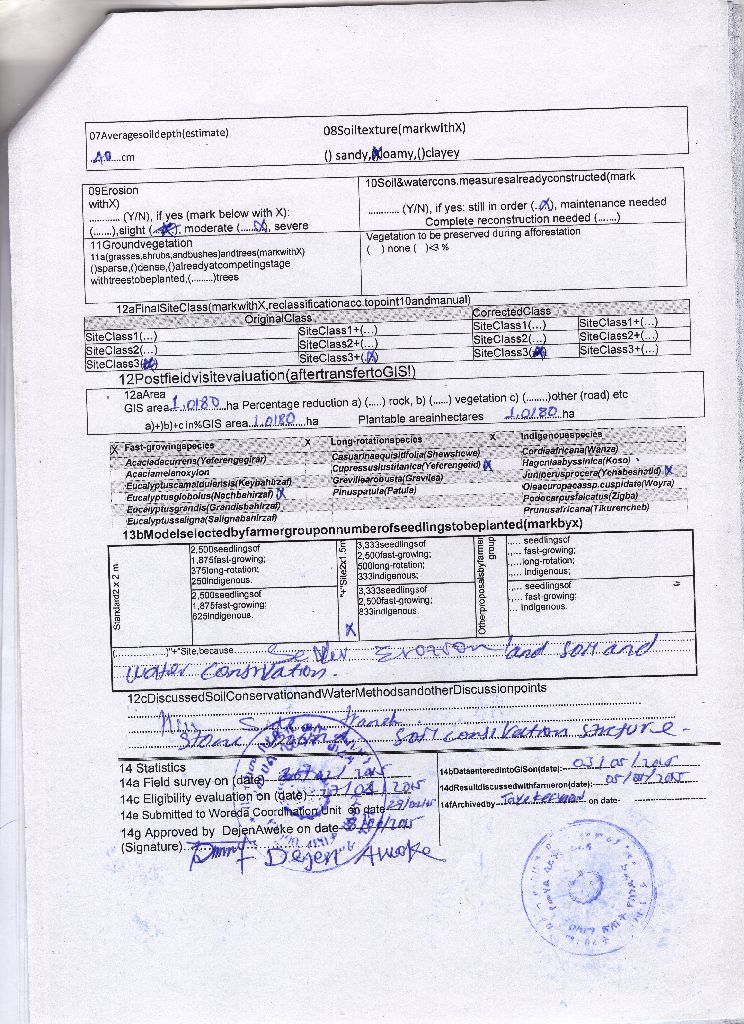 07Averagesoildepth(estimate)
08Soiltexture(markwIthX)
40....cm
() sandy,(X)loamy,()clayey
09Erosion
withX)
............ (Y/N), if yes (mark below with X):
(.......),slight (.X.), moderate (.....X), severe
10Soil&watercons.measuresalreadyconstructed(mark
............ (Y/N), if yes: still in order (..X), maintenance needed
Complete reconstruction needed (.......)
11Groundvegetation
11a(grasses,shrubs,andbushes)andtrees(markwithX)
()sparse,()dense,()alreadyatcompetingstage
withtreestobeplanted,(.........)trees
Vegetation to be preserved during afforestation
( ) none ( )<3 %
12aFinalSiteClass(markwithX,reclassificationacc.topoint10andmanual)
OriginalClass
CorrectedClass
SiteClass1(...) SiteClass1+(...) SiteClass1(...) SiteClass1+(...)
SiteClass2(...) SiteClass2+(...) SiteClass2(...) SiteClass2+(...)
SiteClass3(X) SiteClass3+(.X) SiteClass3(X) SiteClass3+(...)
12Postfieldvisitevaluation(aftertransfertoGIS!)
12aArea
GIS area 1.0180 ha Percentage reduction a) (.....) rock, b) (......) vegetation c) (........)other (road) etc
a)+)b)+cin%GIS area 1.0180 ha Plantable areainhectares 1.0180 ha
X Fast-growingspecies X Long-rotationspecies X Indigenousspecies
Acaciadecurrens(Yeferengegirar) Casuarinaequisitifolia(Shewshewe) Cordiaafricana(Wanza)
Acaciamelanoxylon Cupressuslustitanica(Yeferengetid) X Hageniaabyssinica(Koso)
Eucalyptuscamaldulensis(Keybahirzaf) Grevillearobusta(Gravilea) Juniperusprocera(Yehabeshatid) X
Eucalyptusglobolus(Nechbahirzaf) X Pinuspatula(Patula) Oleaeuropacassp.cuspidate(Woyra)
Eucalyptusgrandis(Grandisbahirzaf) Podocarpusfalcatus(Zigba)
Eucalyptussaligna(Salignabahirzaf) Prunusafricana(Tikurencheb)
13bModelselectedbyfarmergrouponnumberofseedlingstobeplanted(markbyx)
Standard2 x 2 m
2,500seedlingsof
1,875fast-growing;
375long-rotation;
250Indigenous;
2,500seedlingsof
1,875fast-growing;
625Indigenous.
"+"Site2x1.5m
X
3,333seedlingsof
2,500fast-growing;
500long-rotation;
333Indigenous;
3,333seedlingsof
2,500fast-growing;
833Indigenous.
Otherproposalsbyfarmer
group
..... seedlingsof
..... fast-growing;
.....long-rotation;
..... Indigenous;
..... seedlingsof
..... fast-growing;
... Indigenous.
(................)"+"Site,because
Erotion land soil and
water Conservation.
12cDiscussedSoilConservationandWaterMethodsandotherDiscussionpoints
soil conservation structure.
14 Statistics
14a Field survey on (date)
14b DatsenteredintoGISon(date): 03/05/2015
14c Eligibility evaluation on (date)
14dResultdiscussedwithfarmeron(date):
14e Submitted to Woreda Coordination Unit on date
14fArchivedby on date-
14g Approved by DejenAweke on date
(Signature) Dejen Awoke